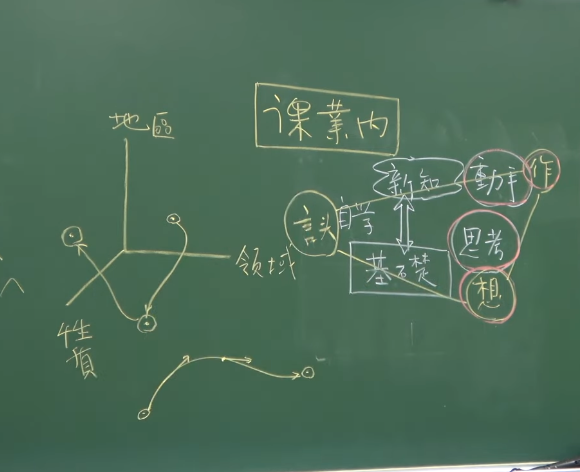 地區
領域
性質
課業內
新知
動手
作
讀
自学
思考
基石楚
想